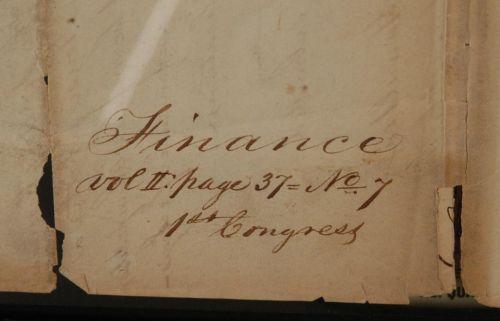 Finance
vol II. page 37= No 7
1st Congress